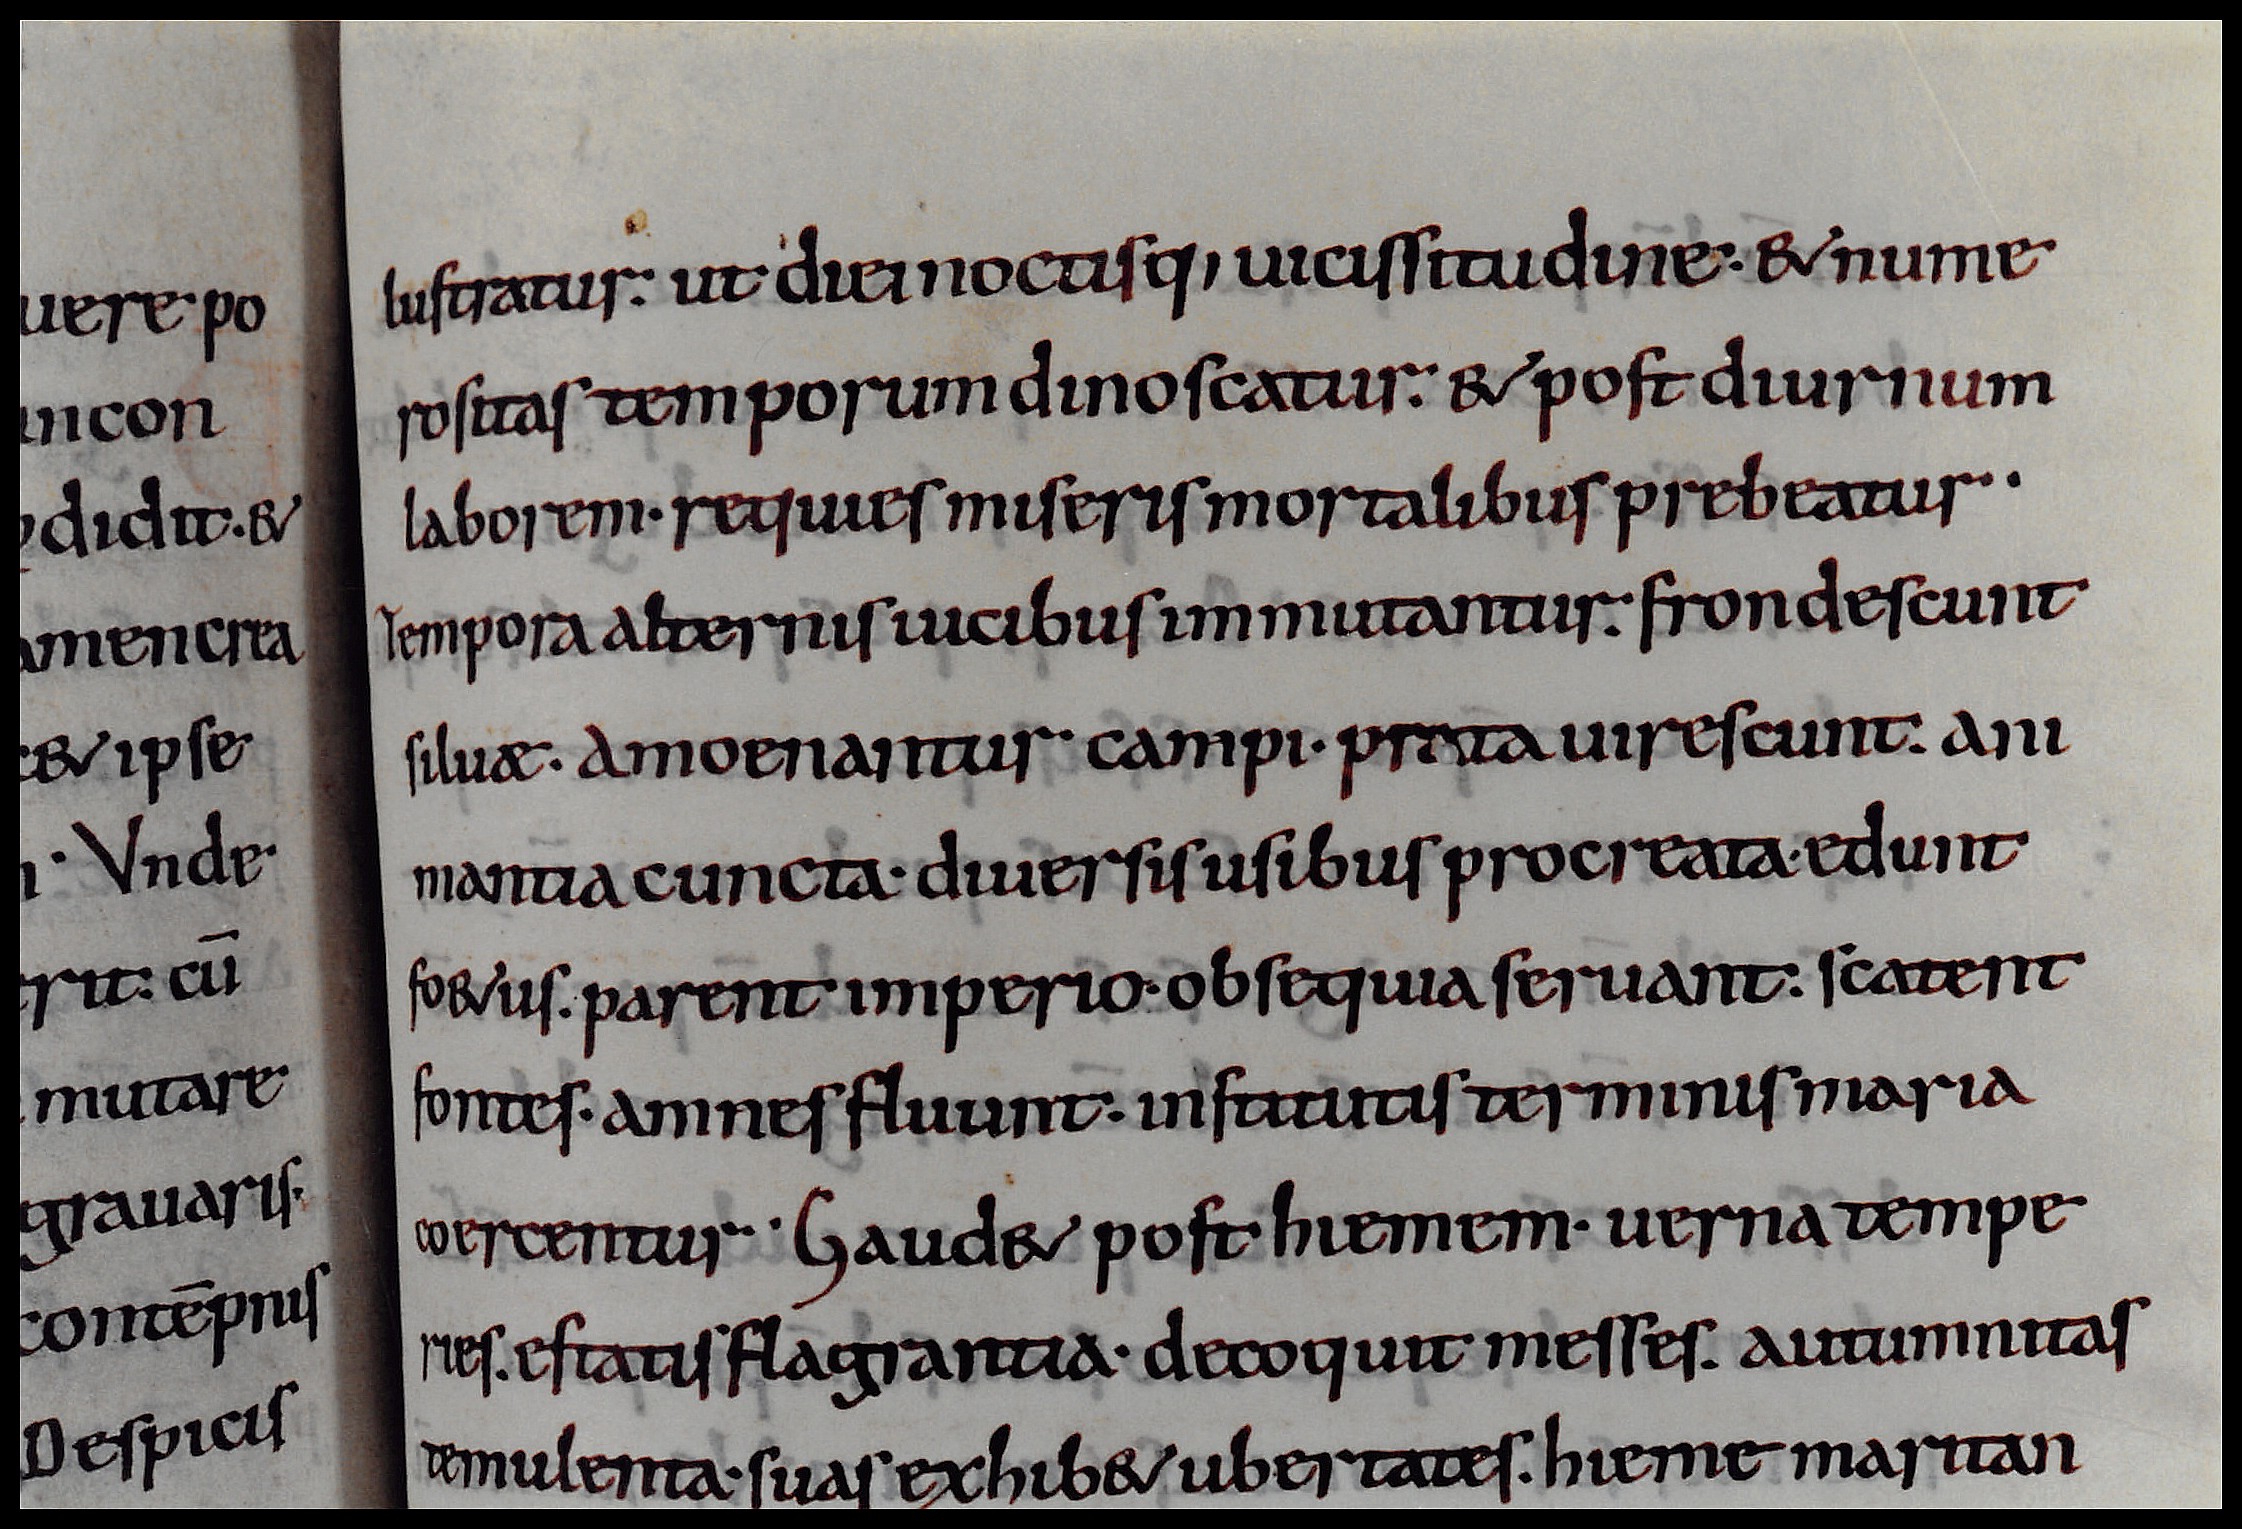 uere po
incon
didit. &
amen crea
& ipse
Vnde
rit: cū
mutare
grauaris.
contēpnis
Despicis
lustratur: ut diei noctisq, uicissitudine. & nume
rositas temporum dinoscatur: & post diurnum
laborem. requies miseris mortalibus prebeatur.
Tempora alternis uicibus immutantur: frondescunt
siluæ. amoenantur campi. prata uirescunt: ani
mantia cuncta. diuersis usibus procreata. edunt
fo&us. parent imperio. obsequia seruant: scatent
fontes. amnes fluunt. institutis terminis maria
coercentur. Gaud& post hiemem. uerna tempe
ries. estatis flagrantia. decoquit messes. autumnitas
temulenta. suas exhib& ubertates. hieme maritan